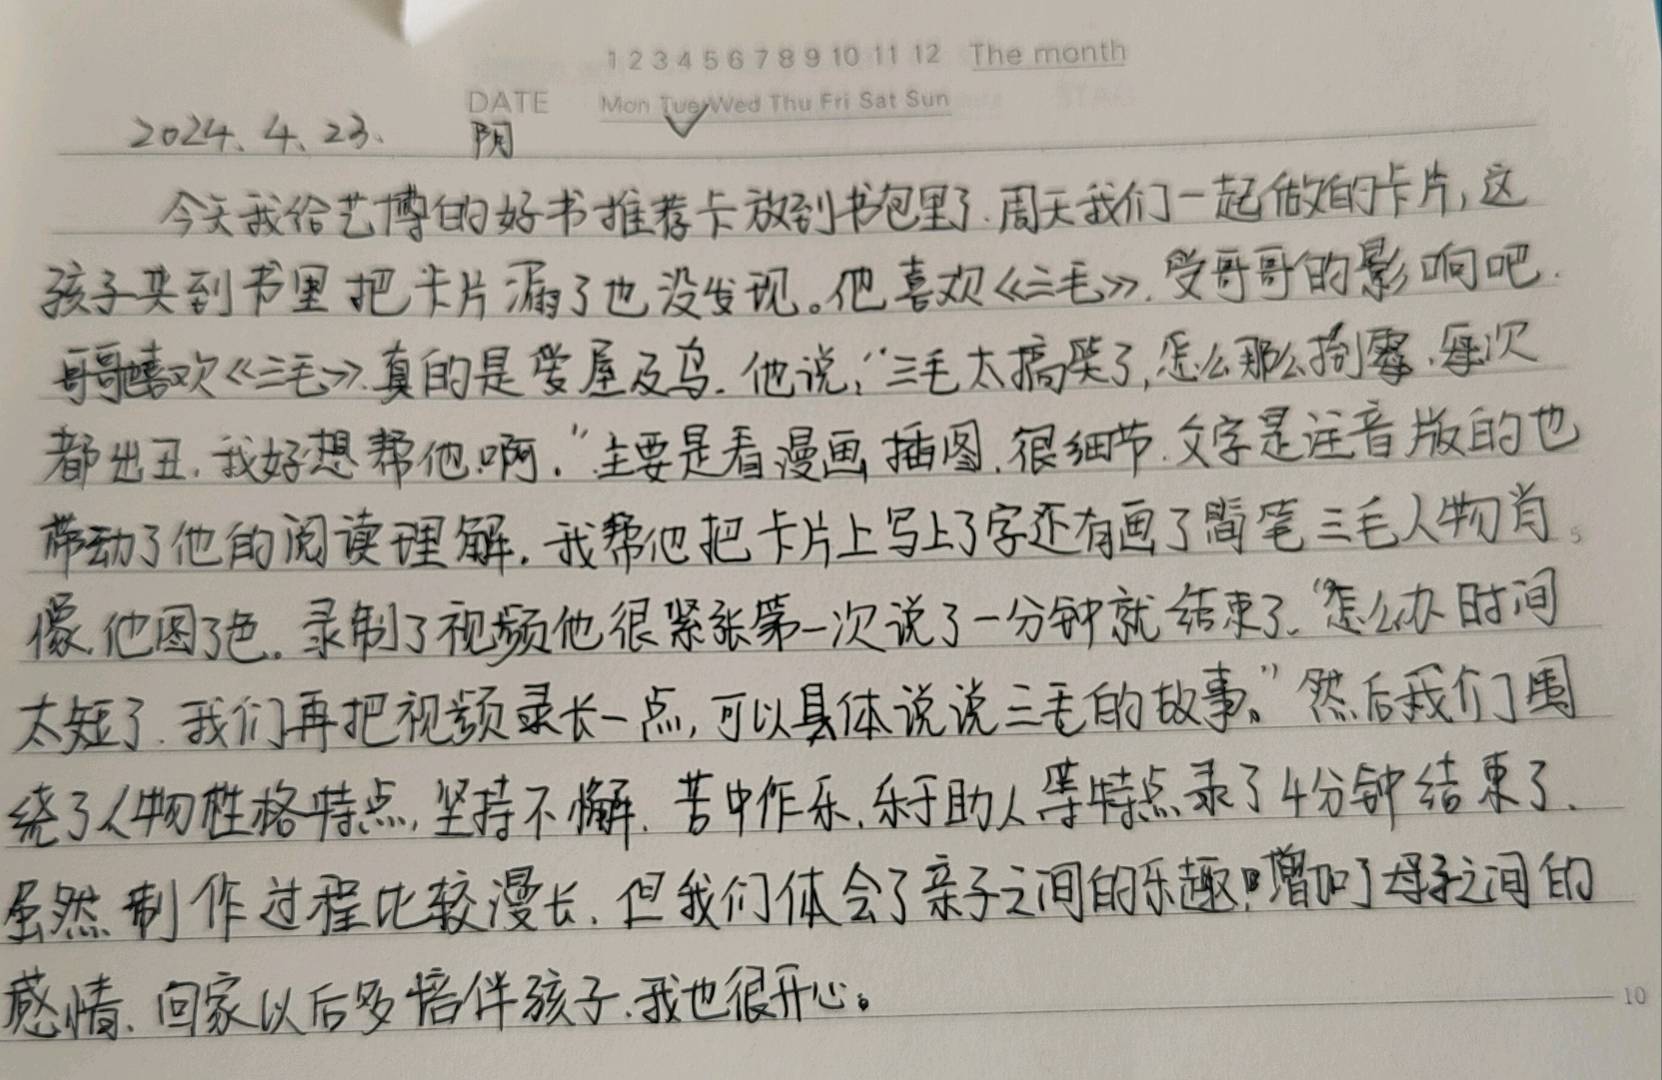 1 2 3 4 5 6 7 8 9 10 11 12 The month
DATE Mon Tue Wed Thu Fri Sat Sun
2024.4.23. 阴
今天我给艺博的好书推荐卡放到书包里了.周天我们一起做的卡片,这
孩子夹到书里把卡片漏了也没发现。他喜欢《三毛》.受哥哥的影响吧.
哥哥喜欢《三毛》.真的是爱屋及乌.他说:“三毛太搞笑了,怎么那么倒霉.每次
都出丑.我好想帮他啊.”主要是看漫画插图.很细节.文字是注音版的也
带动了他的阅读理解.我帮他把卡片上写上了字还有画了简笔三毛人物肖
像.他图了色。录制了视频他很紧张第一次说了一分钟就结束了.“怎么办时间
太短了.我们再把视频录长一点,可以具体说说三毛的故事。”然后我们围
绕了人物性格特点,坚持不懈.苦中作乐.乐于助人等特点录了4分钟结束了.
虽然制作过程比较漫长.但我们体会了亲子之间的乐趣!增加了母子之间的
感情.回家以后多陪伴孩子.我也很开心。
5
10